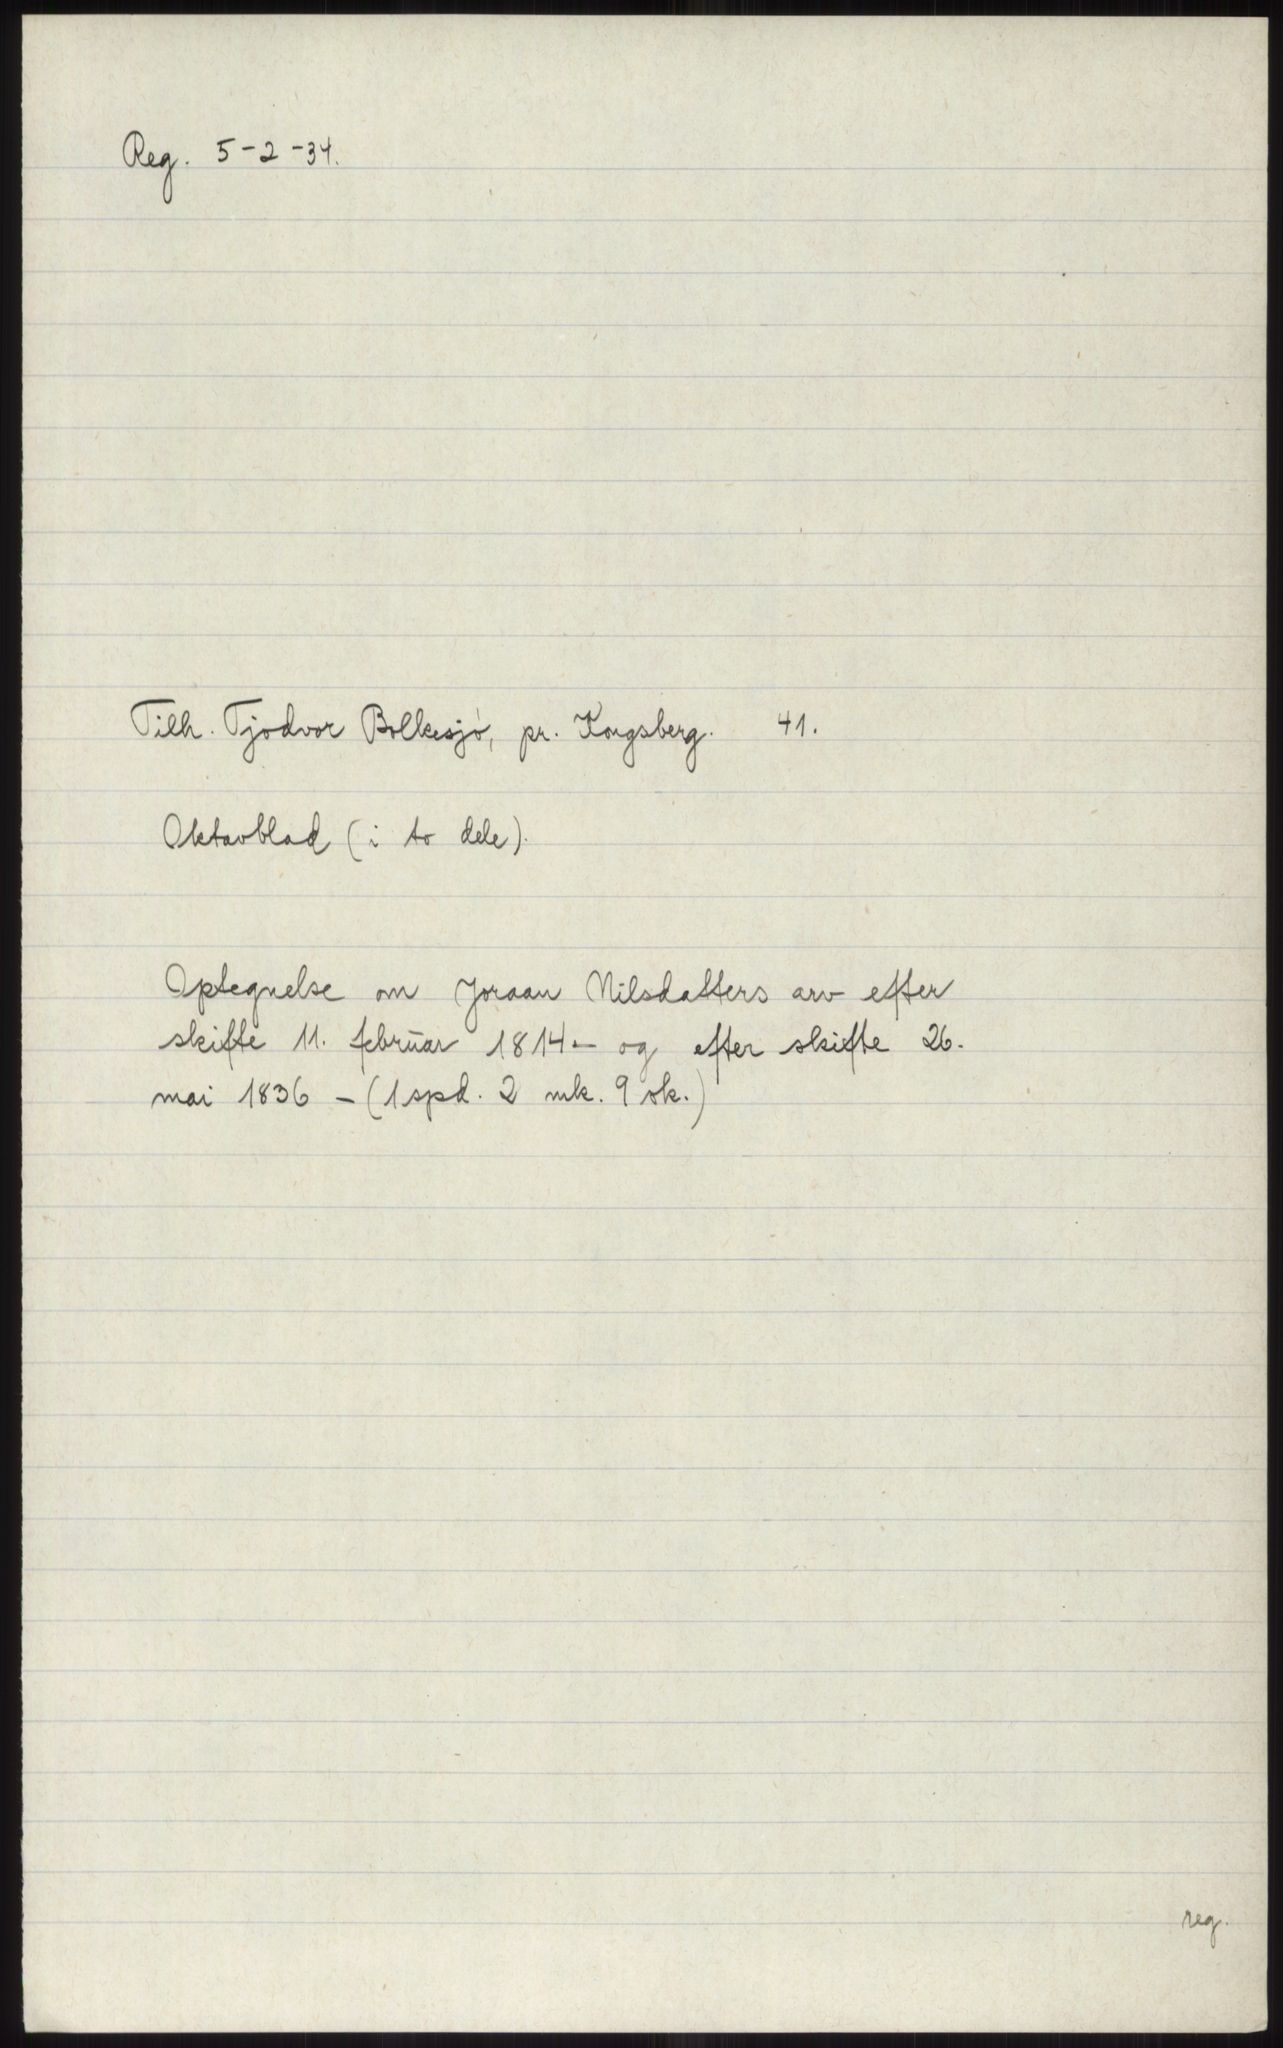 Reg. 5-2-34.
Tilh. Tjodvor Bolkesjø, pr. Kongsberg. 41.
Oktavblad (i to dele).
Optegnelse om Joraan Nilsdatters arv efter
skifte 11. februar 1814 - og efter skifte 26.
mai 1836 - (1 spd. 2 mk. 9 sk.)
reg.